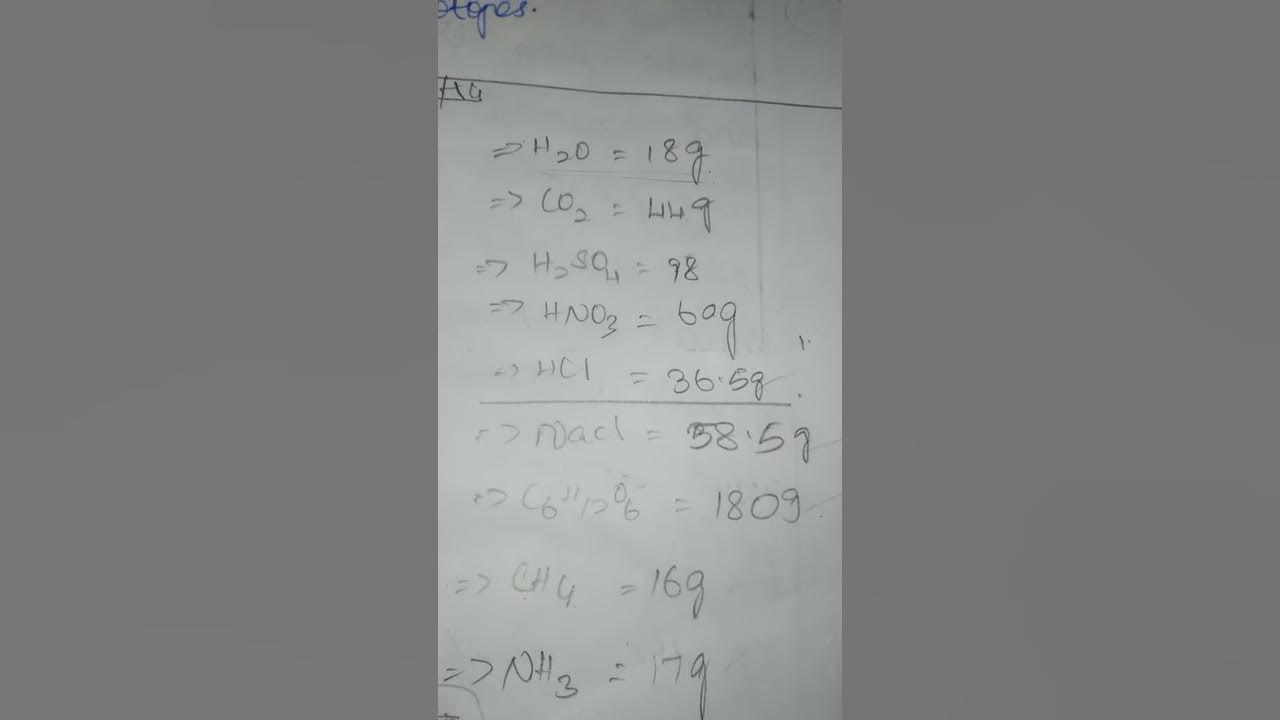 => H₂O = 18g
=> CO₂ = 44g
=> H₂SO₄ = 98
=> HNO₃ = 60g
=> HCl = 36.5g
=> Nacl = 58.5g
=> C₆H₁₂O₆ = 180g
=> CH₄ = 16g
=> NH₃ = 17g